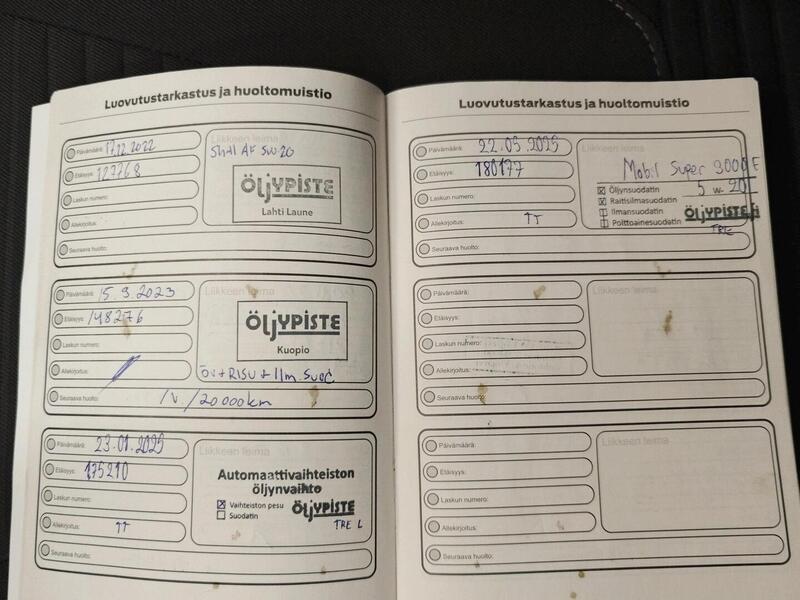 Luovutustarkastus ja huoltomuistio
Päivämäärä: 17.12.2022
Etäisyys: 127768
Laskun numero:
Allekirjoitus:
Seuraava huolto:
Liikkeen leima
Shell AF 5w20
ÖLJYPISTE
Lahti Laune
Päivämäärä: 15.9.2023
Etäisyys: 148276
Laskun numero:
Allekirjoitus:
Seuraava huolto: 1v./20000km
Liikkeen leima
ÖLJYPISTE
Kuopio
ÖV+RISU+Ilm.suod
Päivämäärä: 23.01.2025
Etäisyys: 175210
Laskun numero:
Allekirjoitus: TT
Seuraava huolto:
Liikkeen leima
Automaattivaihteiston
öljynvaihto
Vaihteiston pesu
Suodatin
ÖLJYPISTE
TRE L
Luovutustarkastus ja huoltomuistio
Päivämäärä: 22.05.2025
Etäisyys: 180177
Laskun numero:
Allekirjoitus: TT
Seuraava huolto:
Liikkeen leima
Mobil Super 3000 F
5w-20
Öljynsuodatin
Raitisilmasuodatin
Ilmansuodatin
Polttoainesuodatin
ÖLJYPISTE.fi
TRE
Päivämäärä:
Etäisyys:
Laskun numero:
Allekirjoitus:
Seuraava huolto:
Liikkeen leima
Päivämäärä:
Etäisyys:
Laskun numero:
Allekirjoitus:
Seuraava huolto:
Liikkeen leima